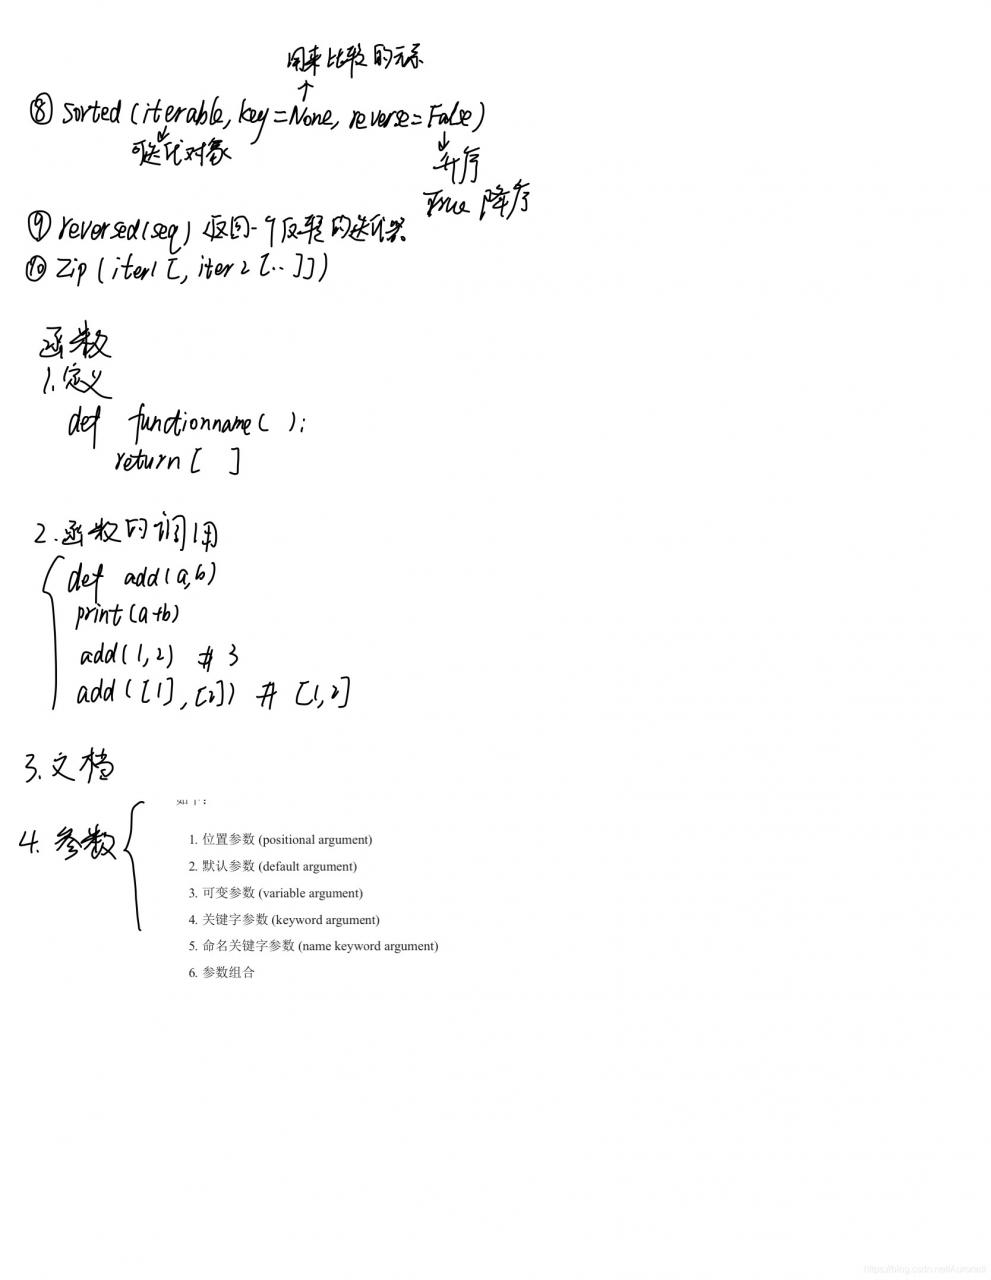 用来比较的元素
⑧ sorted (iterable, key=None, reverse=False)
可迭代对象
升序
True 降序
⑨ reversed(seq) 返回一个反转的迭代器
⑩ Zip (iter1 [, iter2 [..]])
函数
1.定义
def functionname( ):
return [ ]
2.函数的调用
def add(a,b)
print(a+b)
add(1,2) # 3
add([1],[2]) # [1,2]
3.文档
4.参数
如下：
1. 位置参数 (positional argument)
2. 默认参数 (default argument)
3. 可变参数 (variable argument)
4. 关键字参数 (keyword argument)
5. 命名关键字参数 (name keyword argument)
6. 参数组合